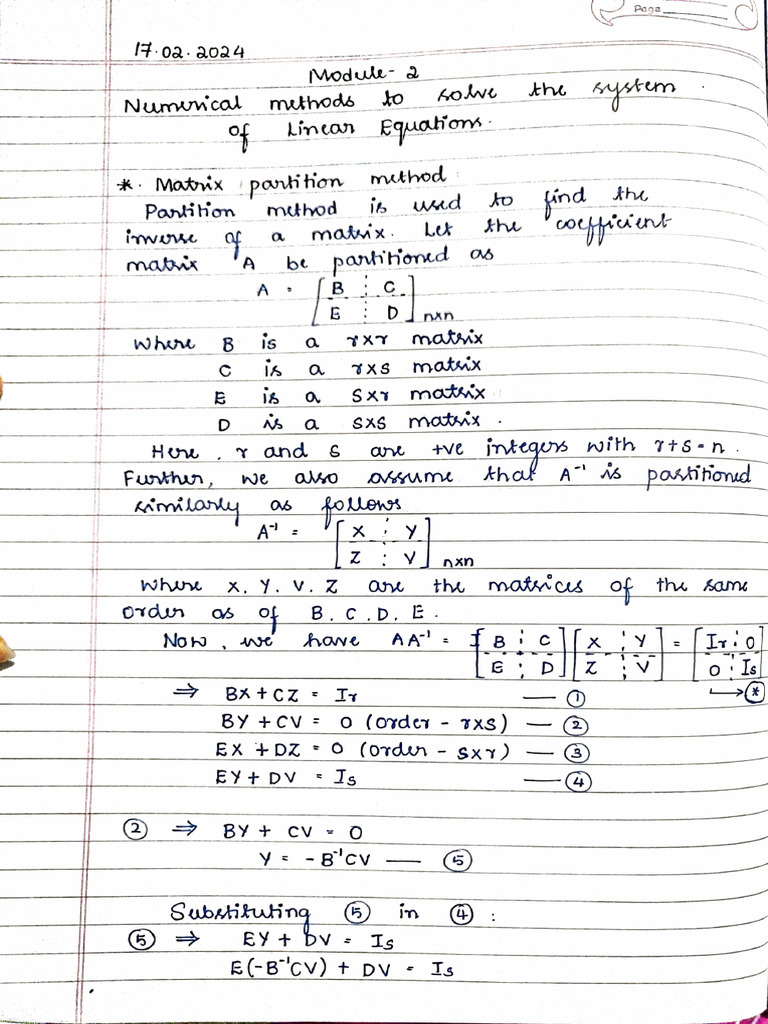 Page
17.02.2024
Module - 2
Numerical methods to solve the system
of Linear Equations.
*. Matrix partition method
Partition method is used to find the
inverse of a matrix. Let the coefficient
matrix A be partitioned as
A = [ B ⋮ C
E ⋮ D ] n×n
Where B is a r×r matrix
C is a r×s matrix
E is a s×r matrix
D is a s×s matrix.
Here, r and s are +ve integers with r+s=n.
Further, we also assume that A⁻¹ is partitioned
similarly as follows
A⁻¹ = [ X ⋮ Y
Z ⋮ V ] n×n
Where X, Y, V, Z are the matrices of the same
order as of B, C, D, E.
Now, we have AA⁻¹ = [ B ⋮ C ] [ X ⋮ Y ] = [ Ir ⋮ 0 ]
[ E ⋮ D ] [ Z ⋮ V ] [ 0 ⋮ Is ]
↳ *
⇒ BX + CZ = Ir — ①
BY + CV = 0 (order - r×s) — ②
EX + DZ = 0 (order - s×r) — ③
EY + DV = Is — ④
② ⇒ BY + CV = 0
Y = -B⁻¹CV — ⑤
Substituting ⑤ in ④ :
⑤ ⇒ EY + DV = Is
E(-B⁻¹CV) + DV = Is